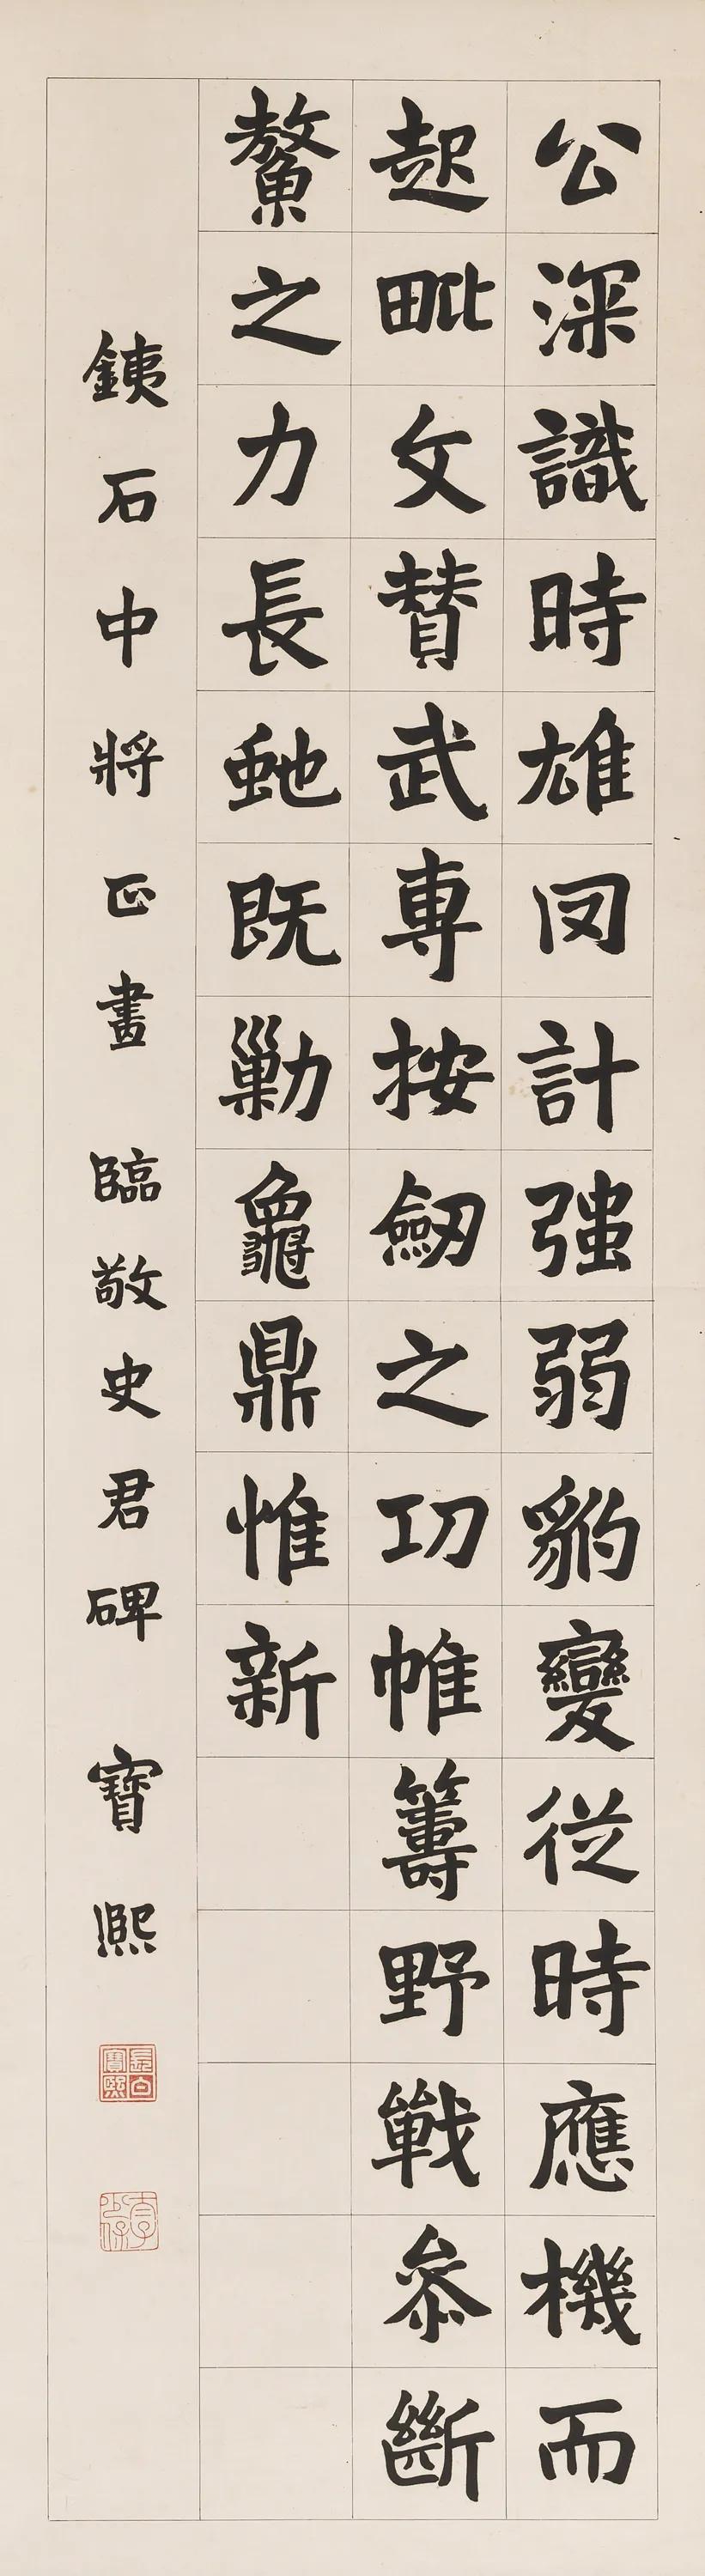 公深識時雄罔計强弱豹變從時應機而
起毗文賛武專按劒之功帷籌野戰叅斷
鼇之力長虵既勦龜鼎惟新
銕石中將正畫 臨敬史君碑 寶熙
長白寶熙
太子少保